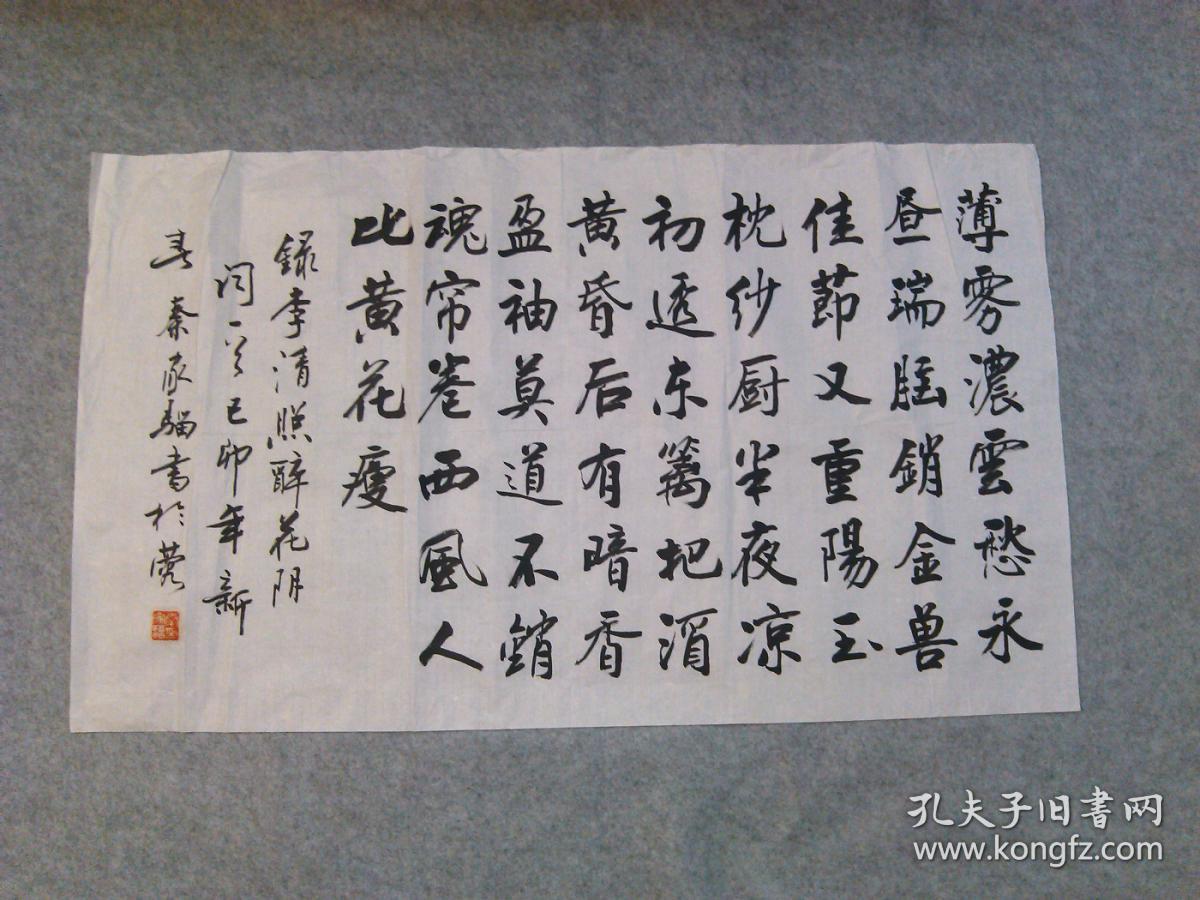 薄雾濃雲愁永
昼瑞腦銷金兽
佳節又重陽玉
枕纱厨半夜凉
初透东篱把酒
黄昏后有暗香
盈袖莫道不銷
魂帘卷西風人
比黄花瘦
録李清照醉花阴
词一首己卯年新
春 秦家骝书於蓉
孔夫子旧书网
www.kongfz.com